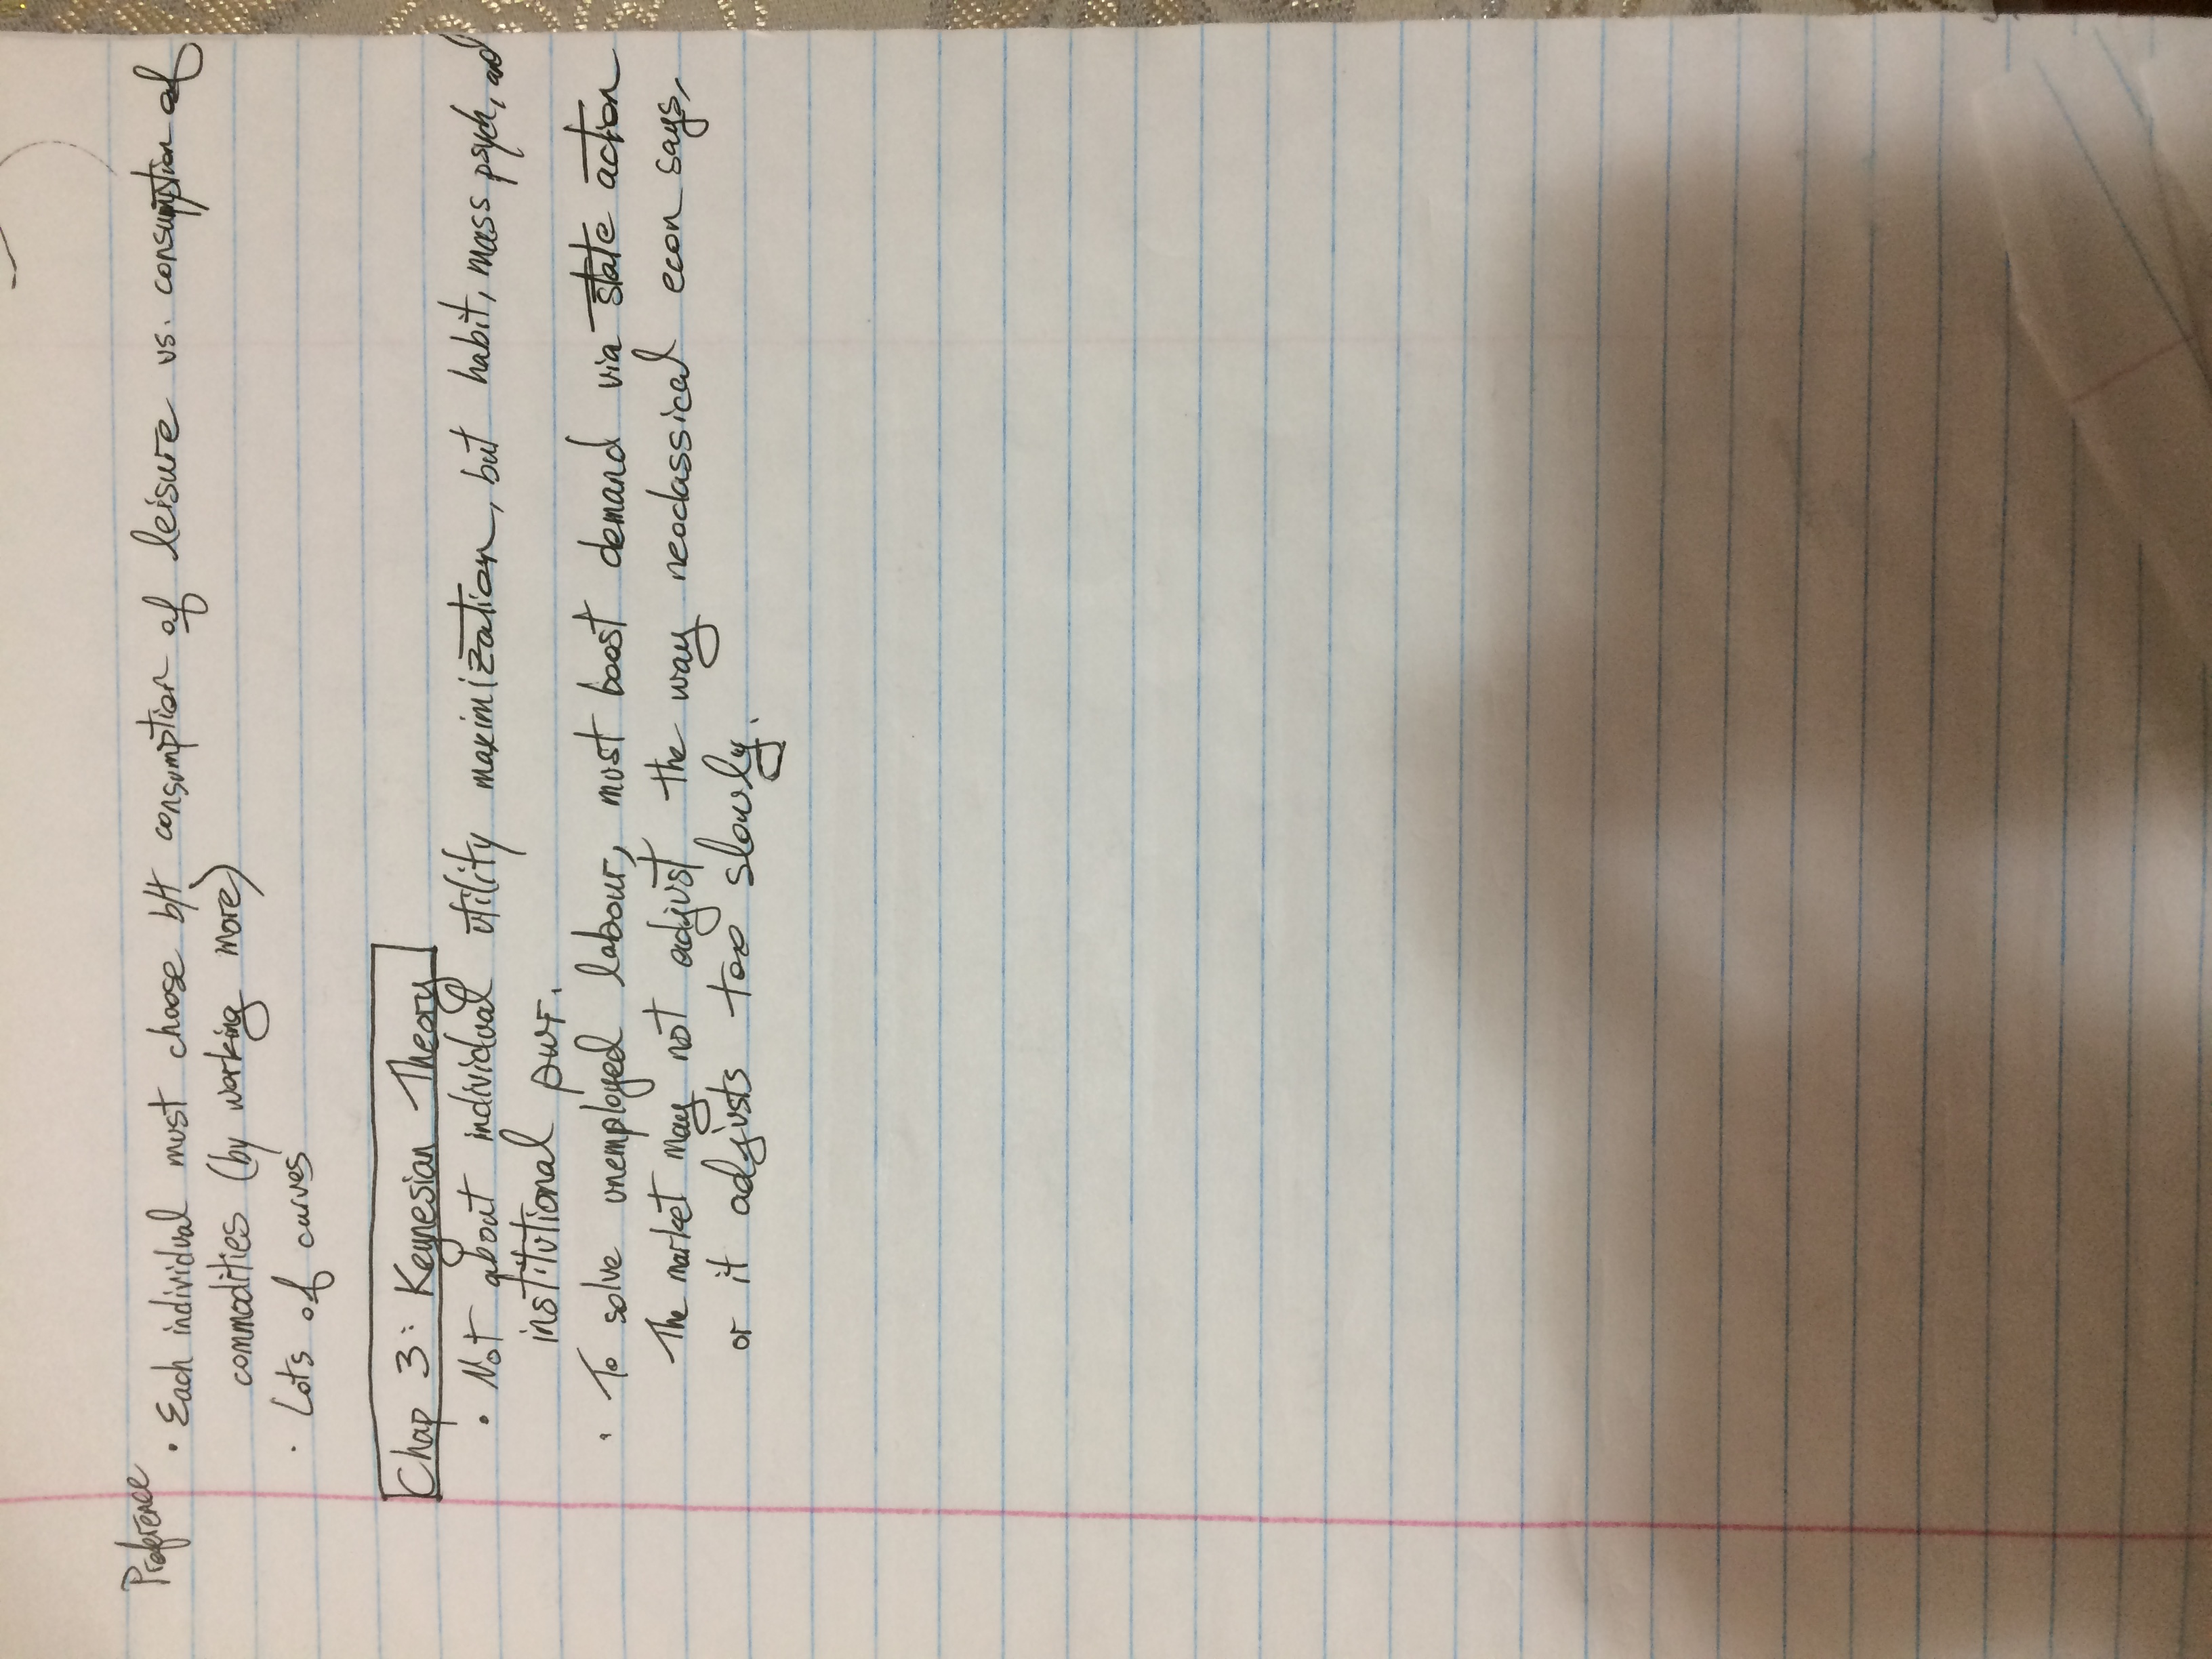 Preference
• Each individual must choose b/t consumption of leisure vs. consumption of
commodities (by working more)
• Lots of curves
Chap 3: Keynesian Theory
• Not about individual utility maximization, but habit, mass psych, and
institutional pwr.
• To solve unemployed labour, must boost demand via state action
The market may not adjust the way neoclassical econ says,
or it adjusts too slowly.